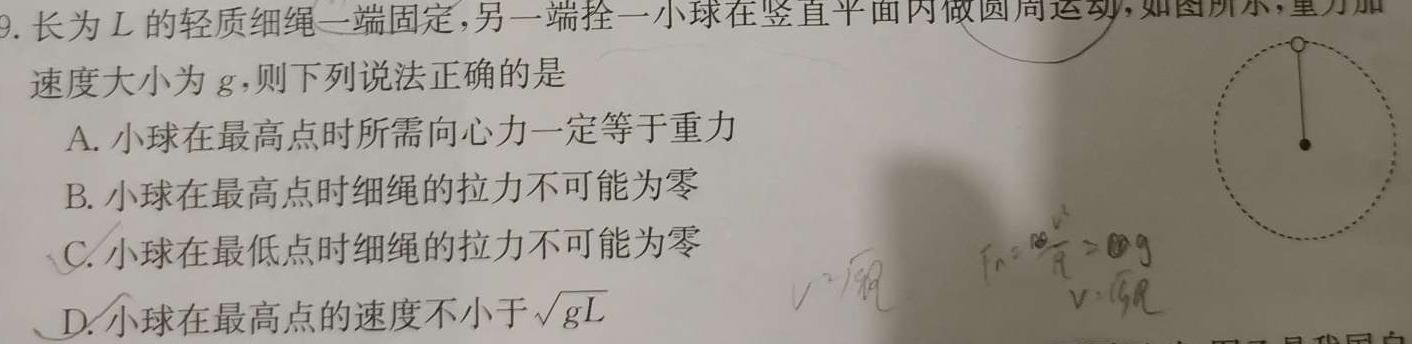 9. 长为 L 的轻质细绳一端固定,另一端拴一小球在竖直平面内做圆周运动,如图所示,重力加
速度大小为 g,则下列说法正确的是
A. 小球在最高点时所需向心力一定等于重力
B. 小球在最高点时细绳的拉力不可能为零
C. 小球在最低点时细绳的拉力不可能为零
D. 小球在最高点的速度不小于 √gL